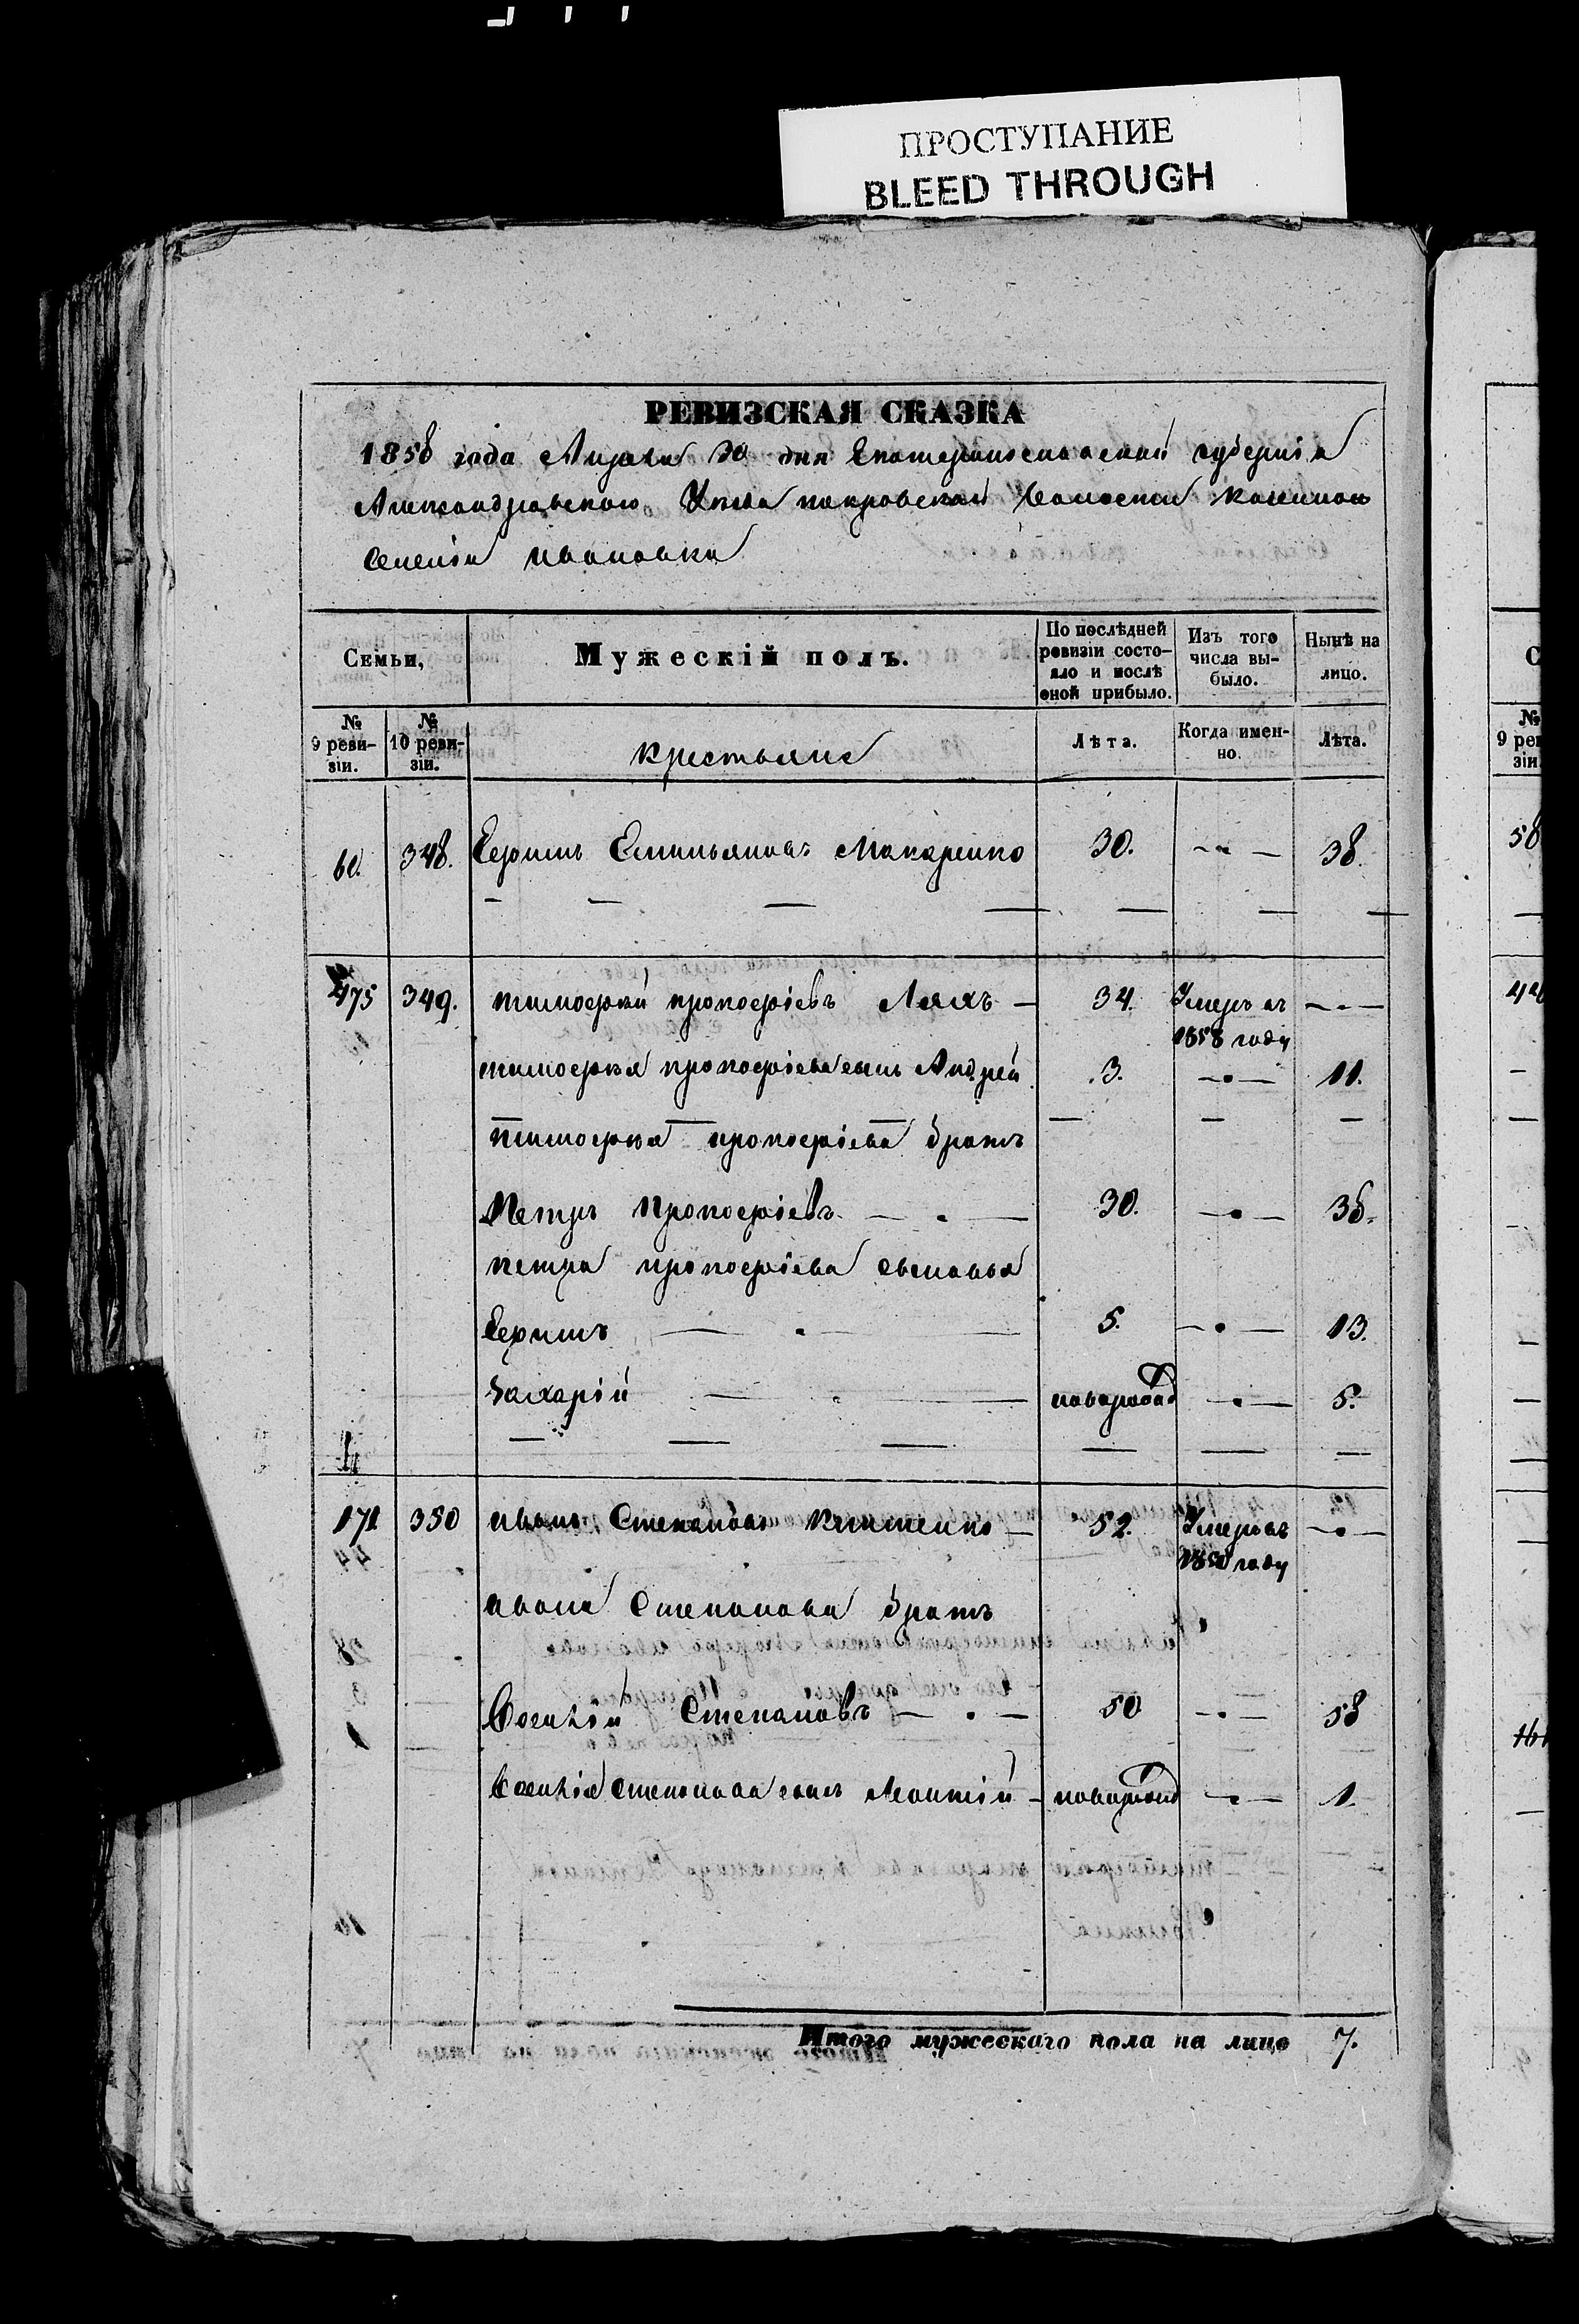 ПРОСТУПАНИЕ
BLEED THROUGH
РЕВИЗСКАЯ СКАЗКА
1858 года Апреля 30 дня Екатеринославской губернiи
Александровского Уезда покровской Волости казенного
Селенiя Ивановки
Семьи,
Мужескiй полъ.
По послѣдней ревизiи состо-
яло и послѣ оной прибыло.
Изъ того числа вы-
было.
Нынѣ на лицо.
№ 9 реви-
зiи.
№ 10 реви-
зiи.
крестьяне
Лѣта.
Когда имен-
но.
Лѣта.
60. 348. Емельяновъ Макаренко 30. 38.
475 349. тимофей прокофiевъ Ляхъ 34. Умеръ въ
1858 году
тимофея прокофiева сынъ Андрей 3. 11.
тимофея прокофiева братъ
Петръ Прокофiевъ 30. 38.
петра прокофiева сыновья
5. 13.
Захарiй новорожд 5.
171 350 иванъ Степановъ 52. Умеръ въ
году
ивана Степанова братъ
Степановъ 50 58
Степанова сынъ Леонтiй новорожд 1.
Итого мужескаго пола на лицо 7.
С
№
9 рев
зiи
58